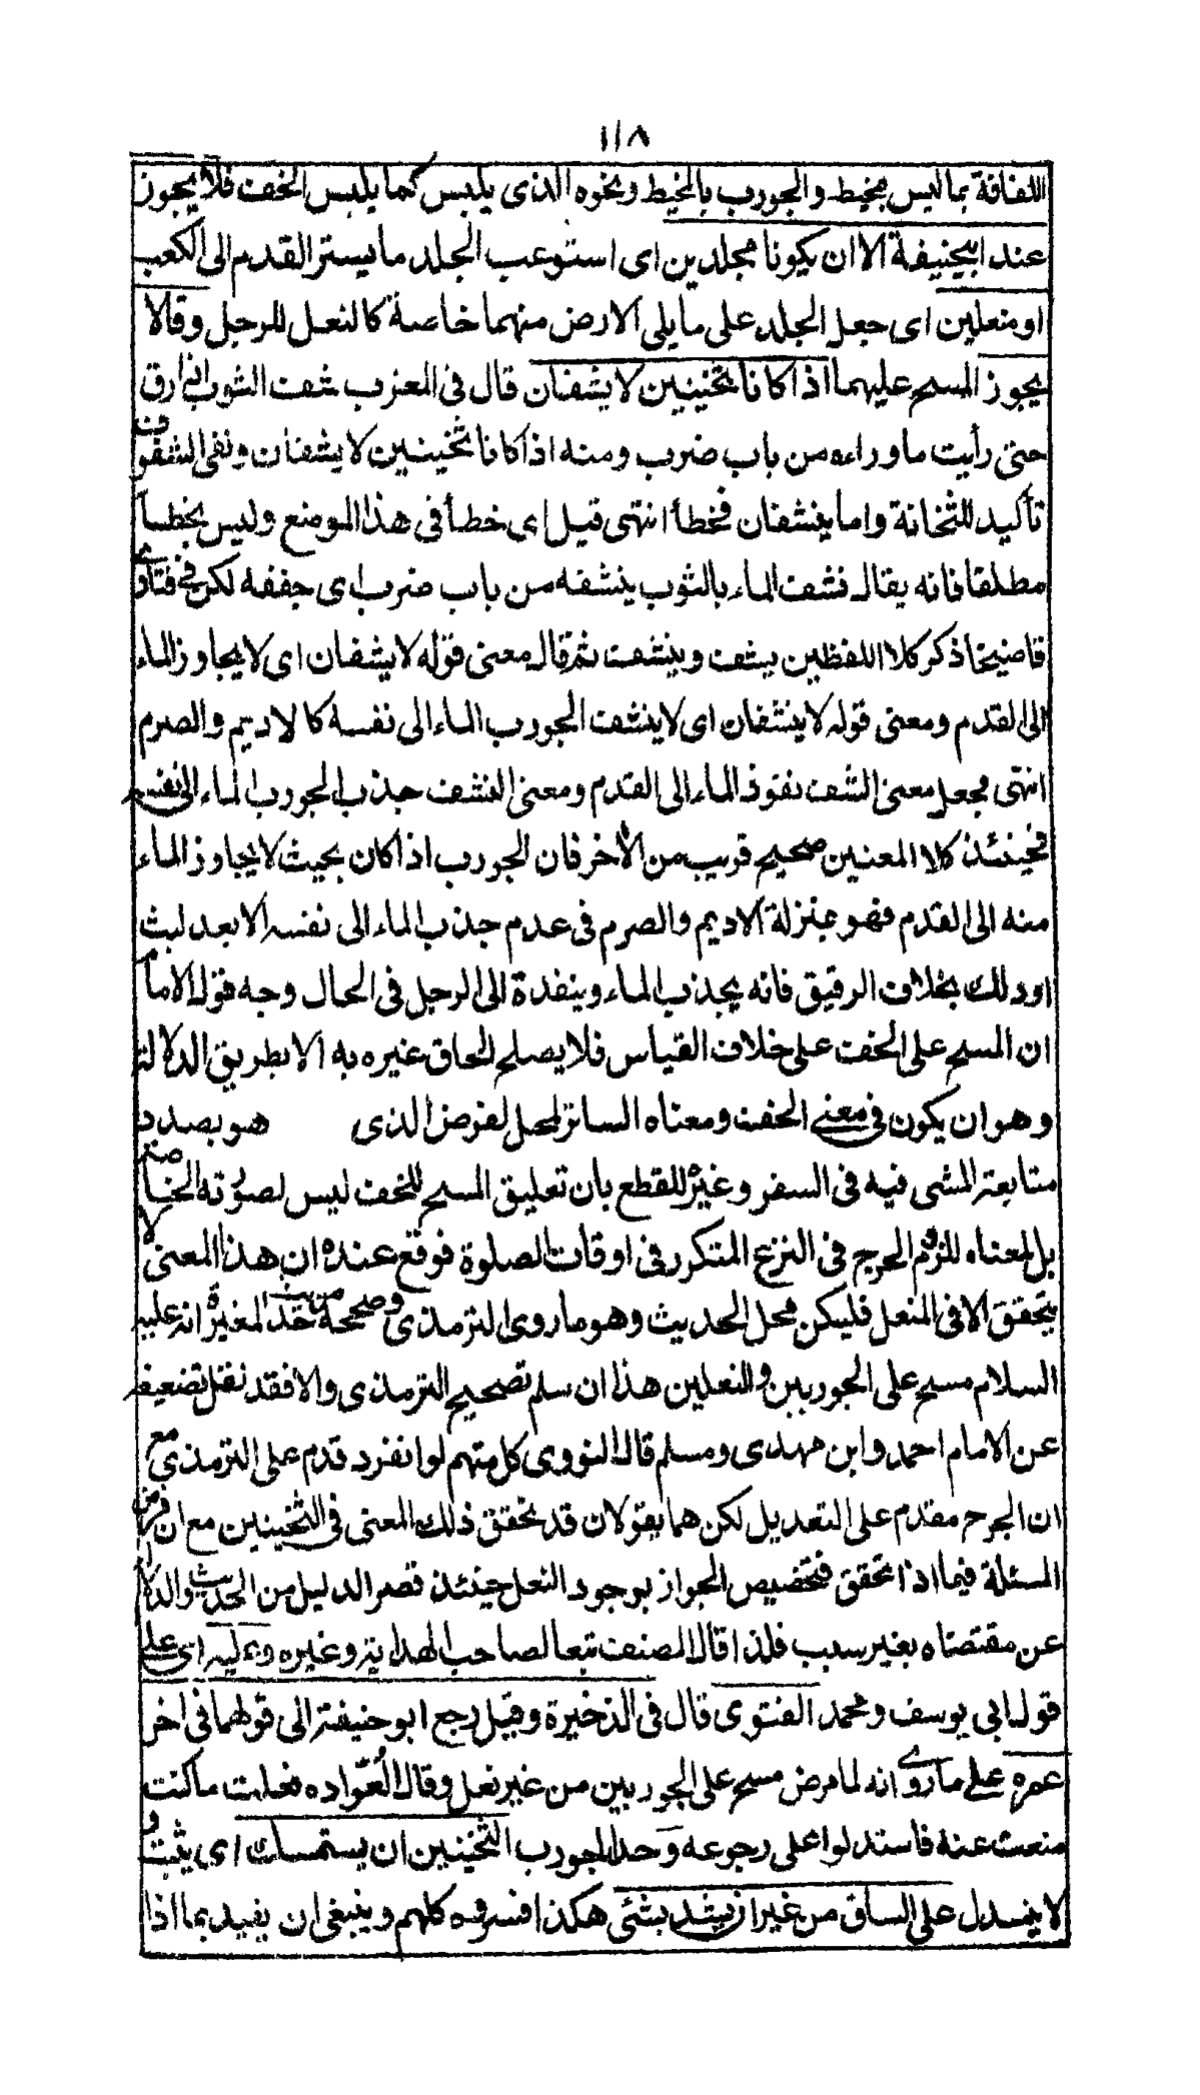 ١١٨
اللفافة بما ليس بمخيط والجورب بالمخيط ونحوه الذى يلبس كما يلبس الخف فلا يجوز
عند ابيحنيفة الا ان يكونا مجلدين اى استوعب الجلد ما يستر القدم الى الكعب
او منعلين اى جعل الجلد على ما يلى الارض منهما خاصة كالنعل للرجل وقالا
يجوز المسح عليهما اذا كانا ثخينين لا يشفان قال فى المغرب شف الثوب اذا رق
حتى رأيت ما وراءه من باب ضرب ومنه اذا كانا ثخينين لا يشفان ونفى الشفوف
تأكيد للثخانة واما ينشفان فخطأ انتهى قيل اى خطأ فى هذا الموضع وليس بخطأ
مطلقا فانه يقال نشف الماء بالثوب ينشفه من باب ضرب اى جففه لكن فى فتاوى
قاضيخان ذكر كلا اللفظين يشف وينشف ثم قال معنى قوله لا يشفان اى لا يجاوز الماء
الى القدم ومعنى قوله لا ينشفان اى لا ينشف الجورب الماء الى نفسه كالاديم والصرم
انتهى فجعل معنى الشف نفوذ الماء الى القدم ومعنى النشف جذب الجورب الماء الى نفسه
فحينئذ كلا المعنيين صحيح قريب من الأخر فان الجورب اذا كان بحيث لا يجاوز الماء
منه الى القدم فهو بمنزلة الاديم والصرم فى عدم جذب الماء الى نفسه الا بعد لبث
او دلك بخلاف الرقيق فانه يجذب الماء وينفذه الى الرجل فى الحال وجه قول الامام
ان المسح على الخف على خلاف القياس فلا يصلح الحاق غيره به الا بطريق الدلالة
وهو ان يكون فى معنى الخف ومعناه الساتر لمحل الفرض الذى هو بصدد
متابعة المشى فيه فى السفر وغيره للقطع بان تعليق المسح للخف ليس لصورته الخاصة
بل لمعناه للزوم الحرج فى النزع المتكرر فى اوقات الصلوة فوقع عنده ان هذا المعنى لا
يتحقق الا فى المنعل فليكن محل الحديث وهو ما روى الترمذى وصححه من حديث المغيرة انه عليه
السلام مسح على الجوربين والنعلين هذا ان سلم تصحيح الترمذى والا فقد نقل تضعيفه
عن الامام احمد وابن مهدى ومسلم قال النووى كل منهم لو انفرد قدم على الترمذى مع
ان الجرح مقدم على التعديل لكن هما يقولان قد تحقق ذلك المعنى فى الثخينين مع ان فرض
المسئلة فيما اذا تحقق فتخصيص الجواز بوجود النعل حينئذ قصر الدليل من الحديث والدلالة
عن مقتضاه بغير سبب فلذا قال المصنف تبعا لصاحب الهداية وغيره وعليه اى على
قول ابى يوسف ومحمد الفتوى قال فى الذخيرة وقيل رجع ابو حنيفة الى قولهما فى اخر
عمره على ما روى انه لما مرض مسح على الجوربين من غير نعل وقال لعواده فعلت ما كنت
منعت عنه فاستدلوا على رجوعه وحد الجورب الثخينين ان يستمسك اى يثبت و
لا ينسدل على الساق من غير ان يشد بشئ هكذا فسروه كلهم وينبغى ان يقيد بما اذا